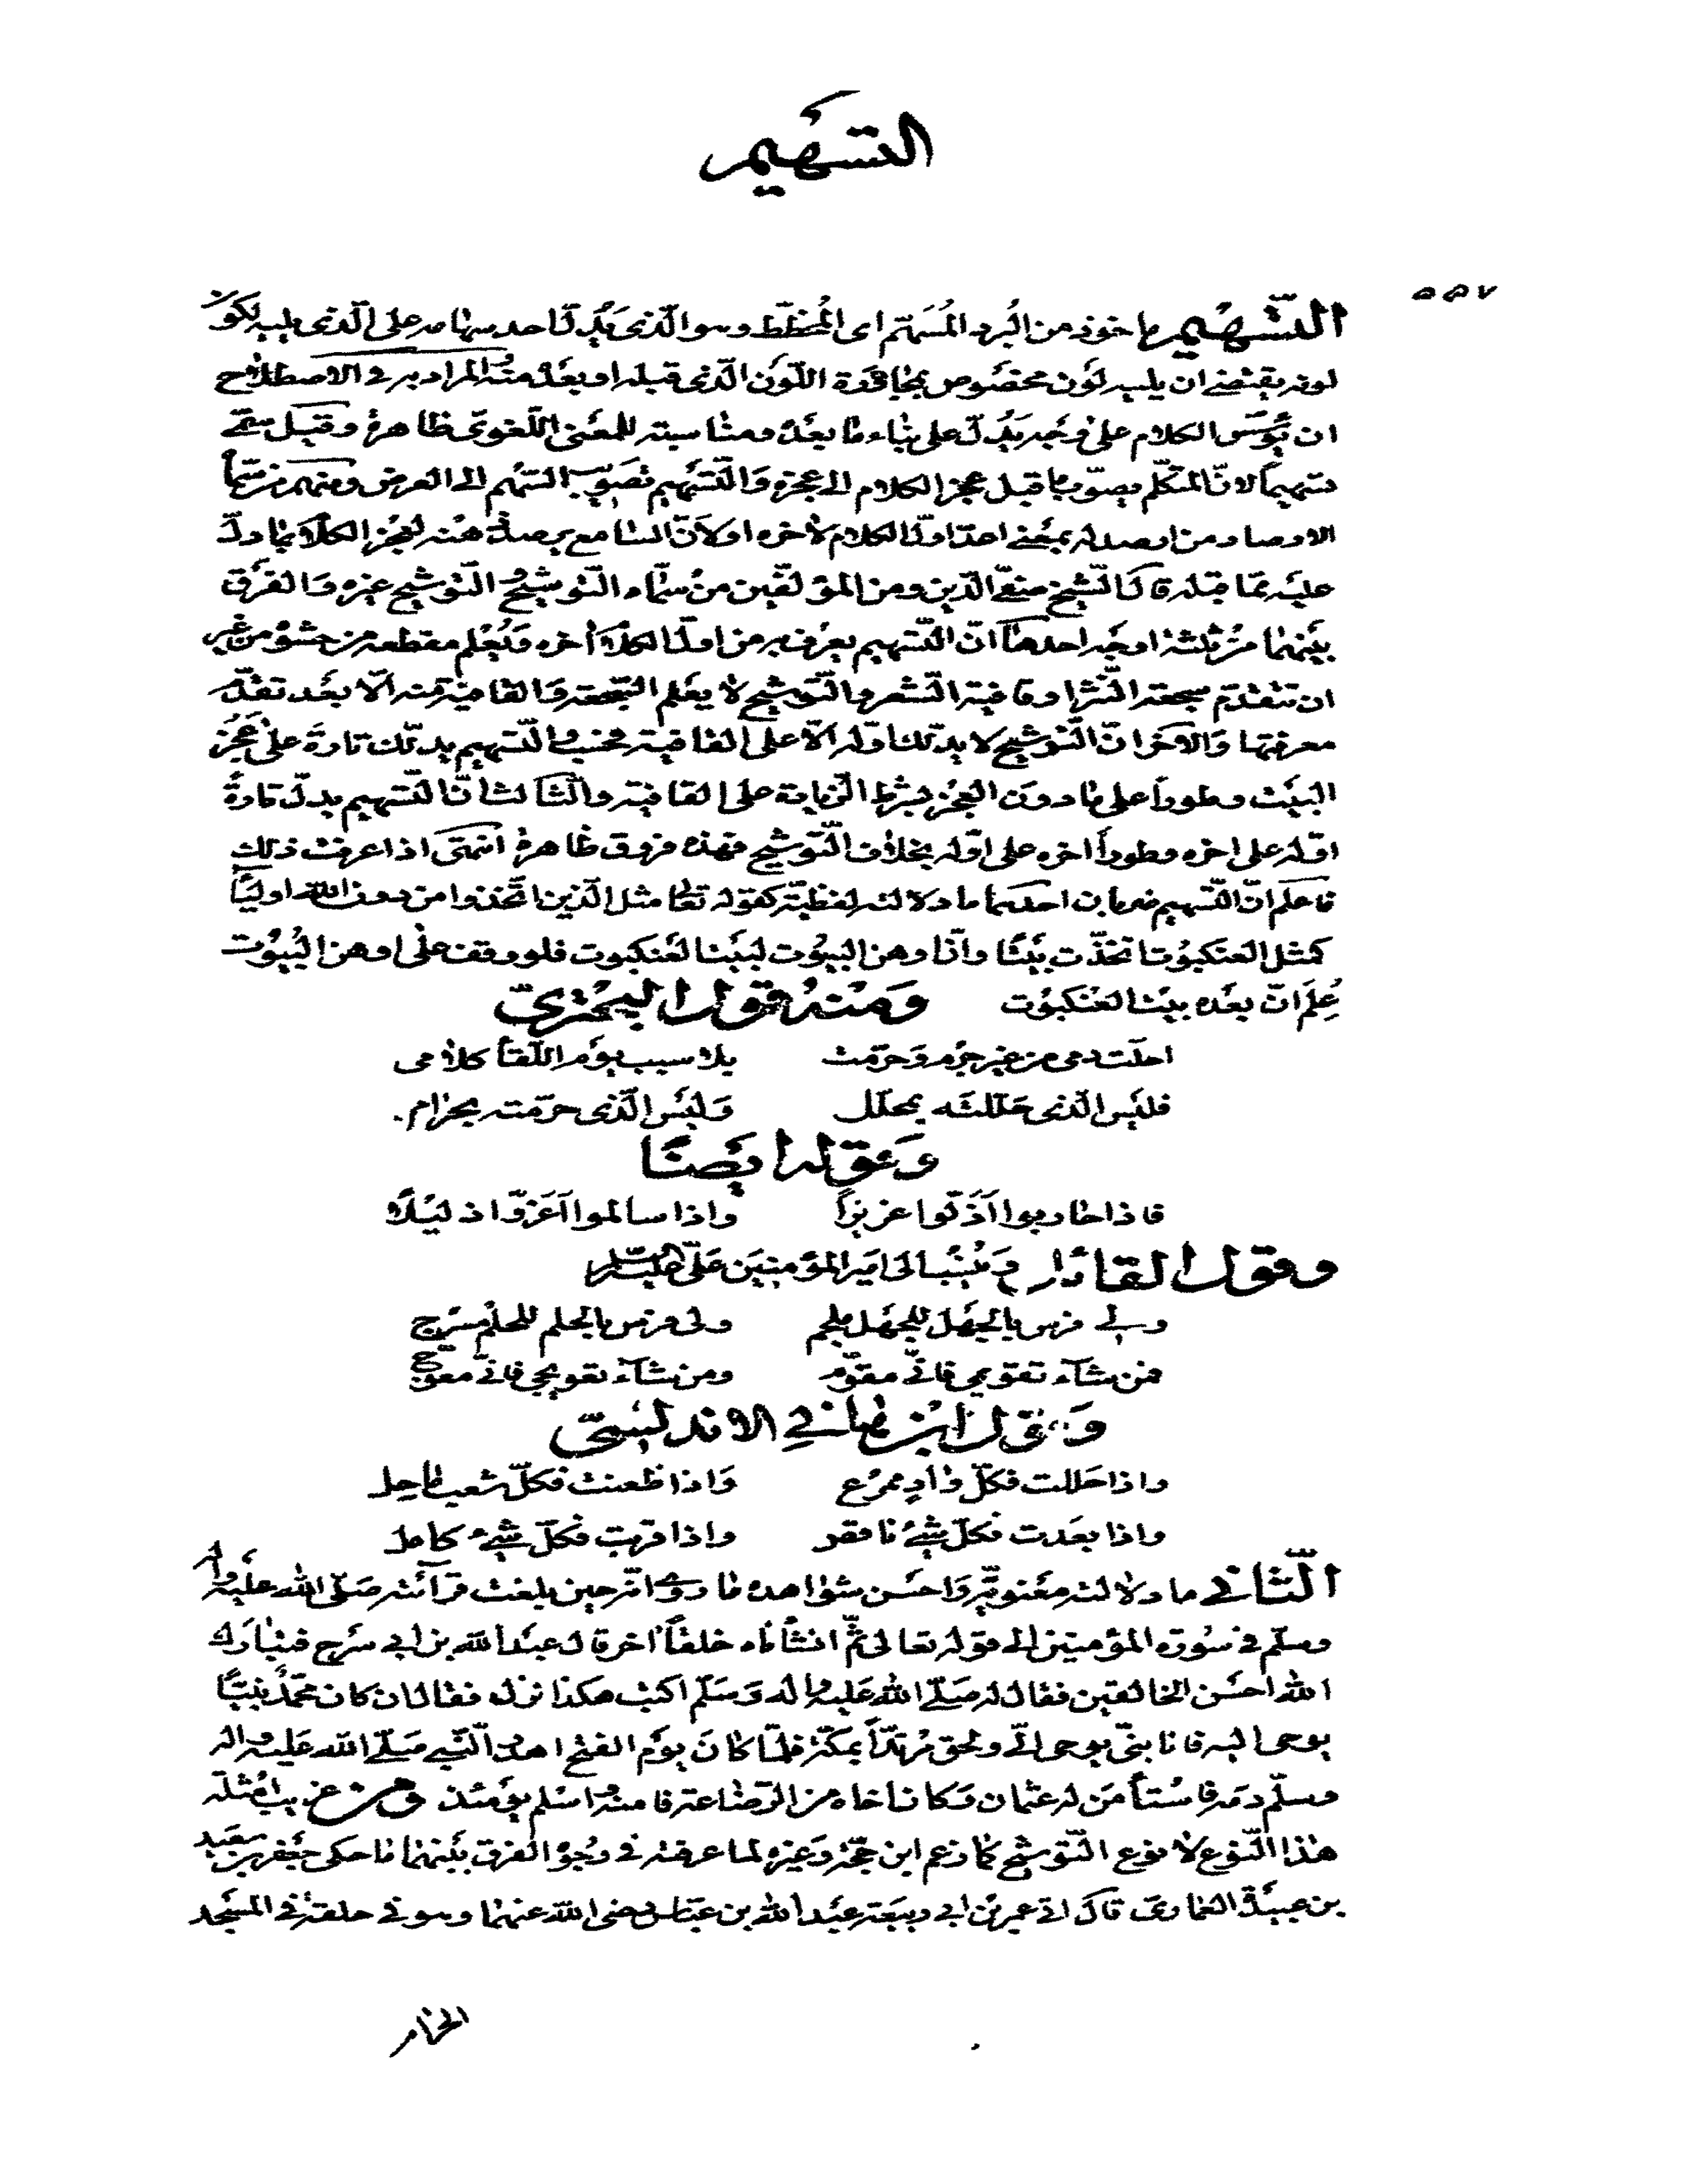 التسهيم
٥٥٧
التَّسْهيم ماخوذ من البُرد المُسَهّم اى المُخطّط وهو الّذى يَدُلّ احد سهامه على الّذى يليه لكون
لونه يقتضى ان يليه لَوْن مخصُوص بمجاورة اللّوْن الّذى قبله او بعْدَه منه المراد به فى الاصطلاح
ان يؤسّس الكلام على وجْه يَدُلّ على بناء ما بعْدَه ومناسبته للمعْنى اللّغوىّ ظاهرة وقيل سمّى
تسهيماً لانّ المتكلّم يصوّب ما قبل عجز الكلام الى عجزه وَالتّسْهيم تصَويب السّهم الى الغرض ومنهم من سمّاه
الارصاد من ارصد له بمَعْنى اعدّ اوّل الكلام لآخره او لاَنّ السّامع يرصد ذهنه لعجُز الكلام بما دلّ
عليْه ممّا قبله قالَ الشّيخ صفىّ الدّين ومن المؤلّفين منْ سمّاه التّوشيح و التّوشيح غيره وَالفرْق
بيْنهما منْ ثلثة اوجُه احدها انّ التّسهيم يعرَف به من اوّل الكلام آخره وَيُعْلم مقطعه من حشوه من غير
ان تتقدّم سجعة النّثر او قافية الشّعر والتّوشيح لا يعْلم السّجعة وَالقافية منه الّا بعْد تقدّم
معرفتها وَالآخر انّ التّوشيح لا يدلّك اوّله الّا على القافية فحسب والتّسهيم يدلّك تارةً على عَجُز
البيْت وطوراً على ما دون العجُز بشرط الزّيادة على القافية والثّالث انّ التّسهيم يدلّ تارةً
اوّله على اخره وطوراً اخره على اوّله بخلاف التّوشيح فهذه فروق ظاهرة انتهى اذا عرفت ذلك
فاعلم انّ التّسهيم ضربان احدهما ما دلالته لفظيّة كقوله تعالى مثل الّذين اتّخذوا من دون اللّه اولياءَ
كمثل العنكبُوت اتخذّت بيْتًا وانّ اوهن البيُوت لبيْت العَنكبوت فلو وقف على اوهن البُيُوت
عُلِمَ انّ بعْده بيْت العنْكبوُت وَمنْهُ قول البحْترىّ
احلّت دمى من غير جُرْم وَحرّمت بلا سبب يوْم اللّقآ كلامى
فليْس الّذى حَلّلته بمحلّل وَليْس الّذى حرّمته بحرام.
وَقوله ايضًا
فاذا حاربوا اَذَلّوا عزيزاً واذا سالموا اَعَزّوا ذليْلًا
وقول القائل وَينْسب الى امير المؤمنين عَلىّ عليه السّلام
ولى فرس بالجهْل للجهْل ملجم ولى فرس بالحلم للحلْم مسْرج
فمن شآء تقويمى فانّى مقوّم ومن شآء تعويجى فانّى معوّج
وَقول ابن هانى الاندلسىّ
واذا حَللت فكلّ وادٍ ممْرُع وَاذا ظعنت فكلّ شعب ماحل
واذا بعَدت فكلّ شيْء ناقص واذا قربت فكلّ شيْء كامل
الثّانى ما دلالته معْنويّة وَاحسَن شواهده ما روى انّه حين بلغت قرآئته صَلّى اللّه عليْه وآله
وسلّم فى سُورة المؤمنين الى قوله تعالى ثمّ انشأناه خلقاً اخر قال عبْد اللّه بن ابى سرح فتبارك
اللّه احسَن الخالقين فقال له صَلّى اللّه عَليْه واله وَسَلّم اكتب هكذا نزلت فقال ان كان محمّدٌ نبيّاً
يوحى اليه فانا نبىّ يوحى الىّ ولحق مرْتدّاً بمكّة فلمّا كانَ يوْم الفتح اهدر النّبى صَلّى اللّه عَليْه واله
وسلّم دمه فاسْتأمَن له عثمان وَكان اخاه من الرّضاعة فامنه واسْلم يوْمئذ وَمن غريب امْثلة
هذا النّوع لا نوع التّوشيح كما زعم ابن حجّة وَغيره لما عرفته فى وجُوه الفرق بيْنهما ما حكى جعفر بن سعيد
بن عبيْدة العمارىّ قالَ اتى عمر بْن ابى ربيعة عبْد اللّه بن عبّاس رضى اللّه عنهما وهو فى حلقة فى المسْجد
الحرام